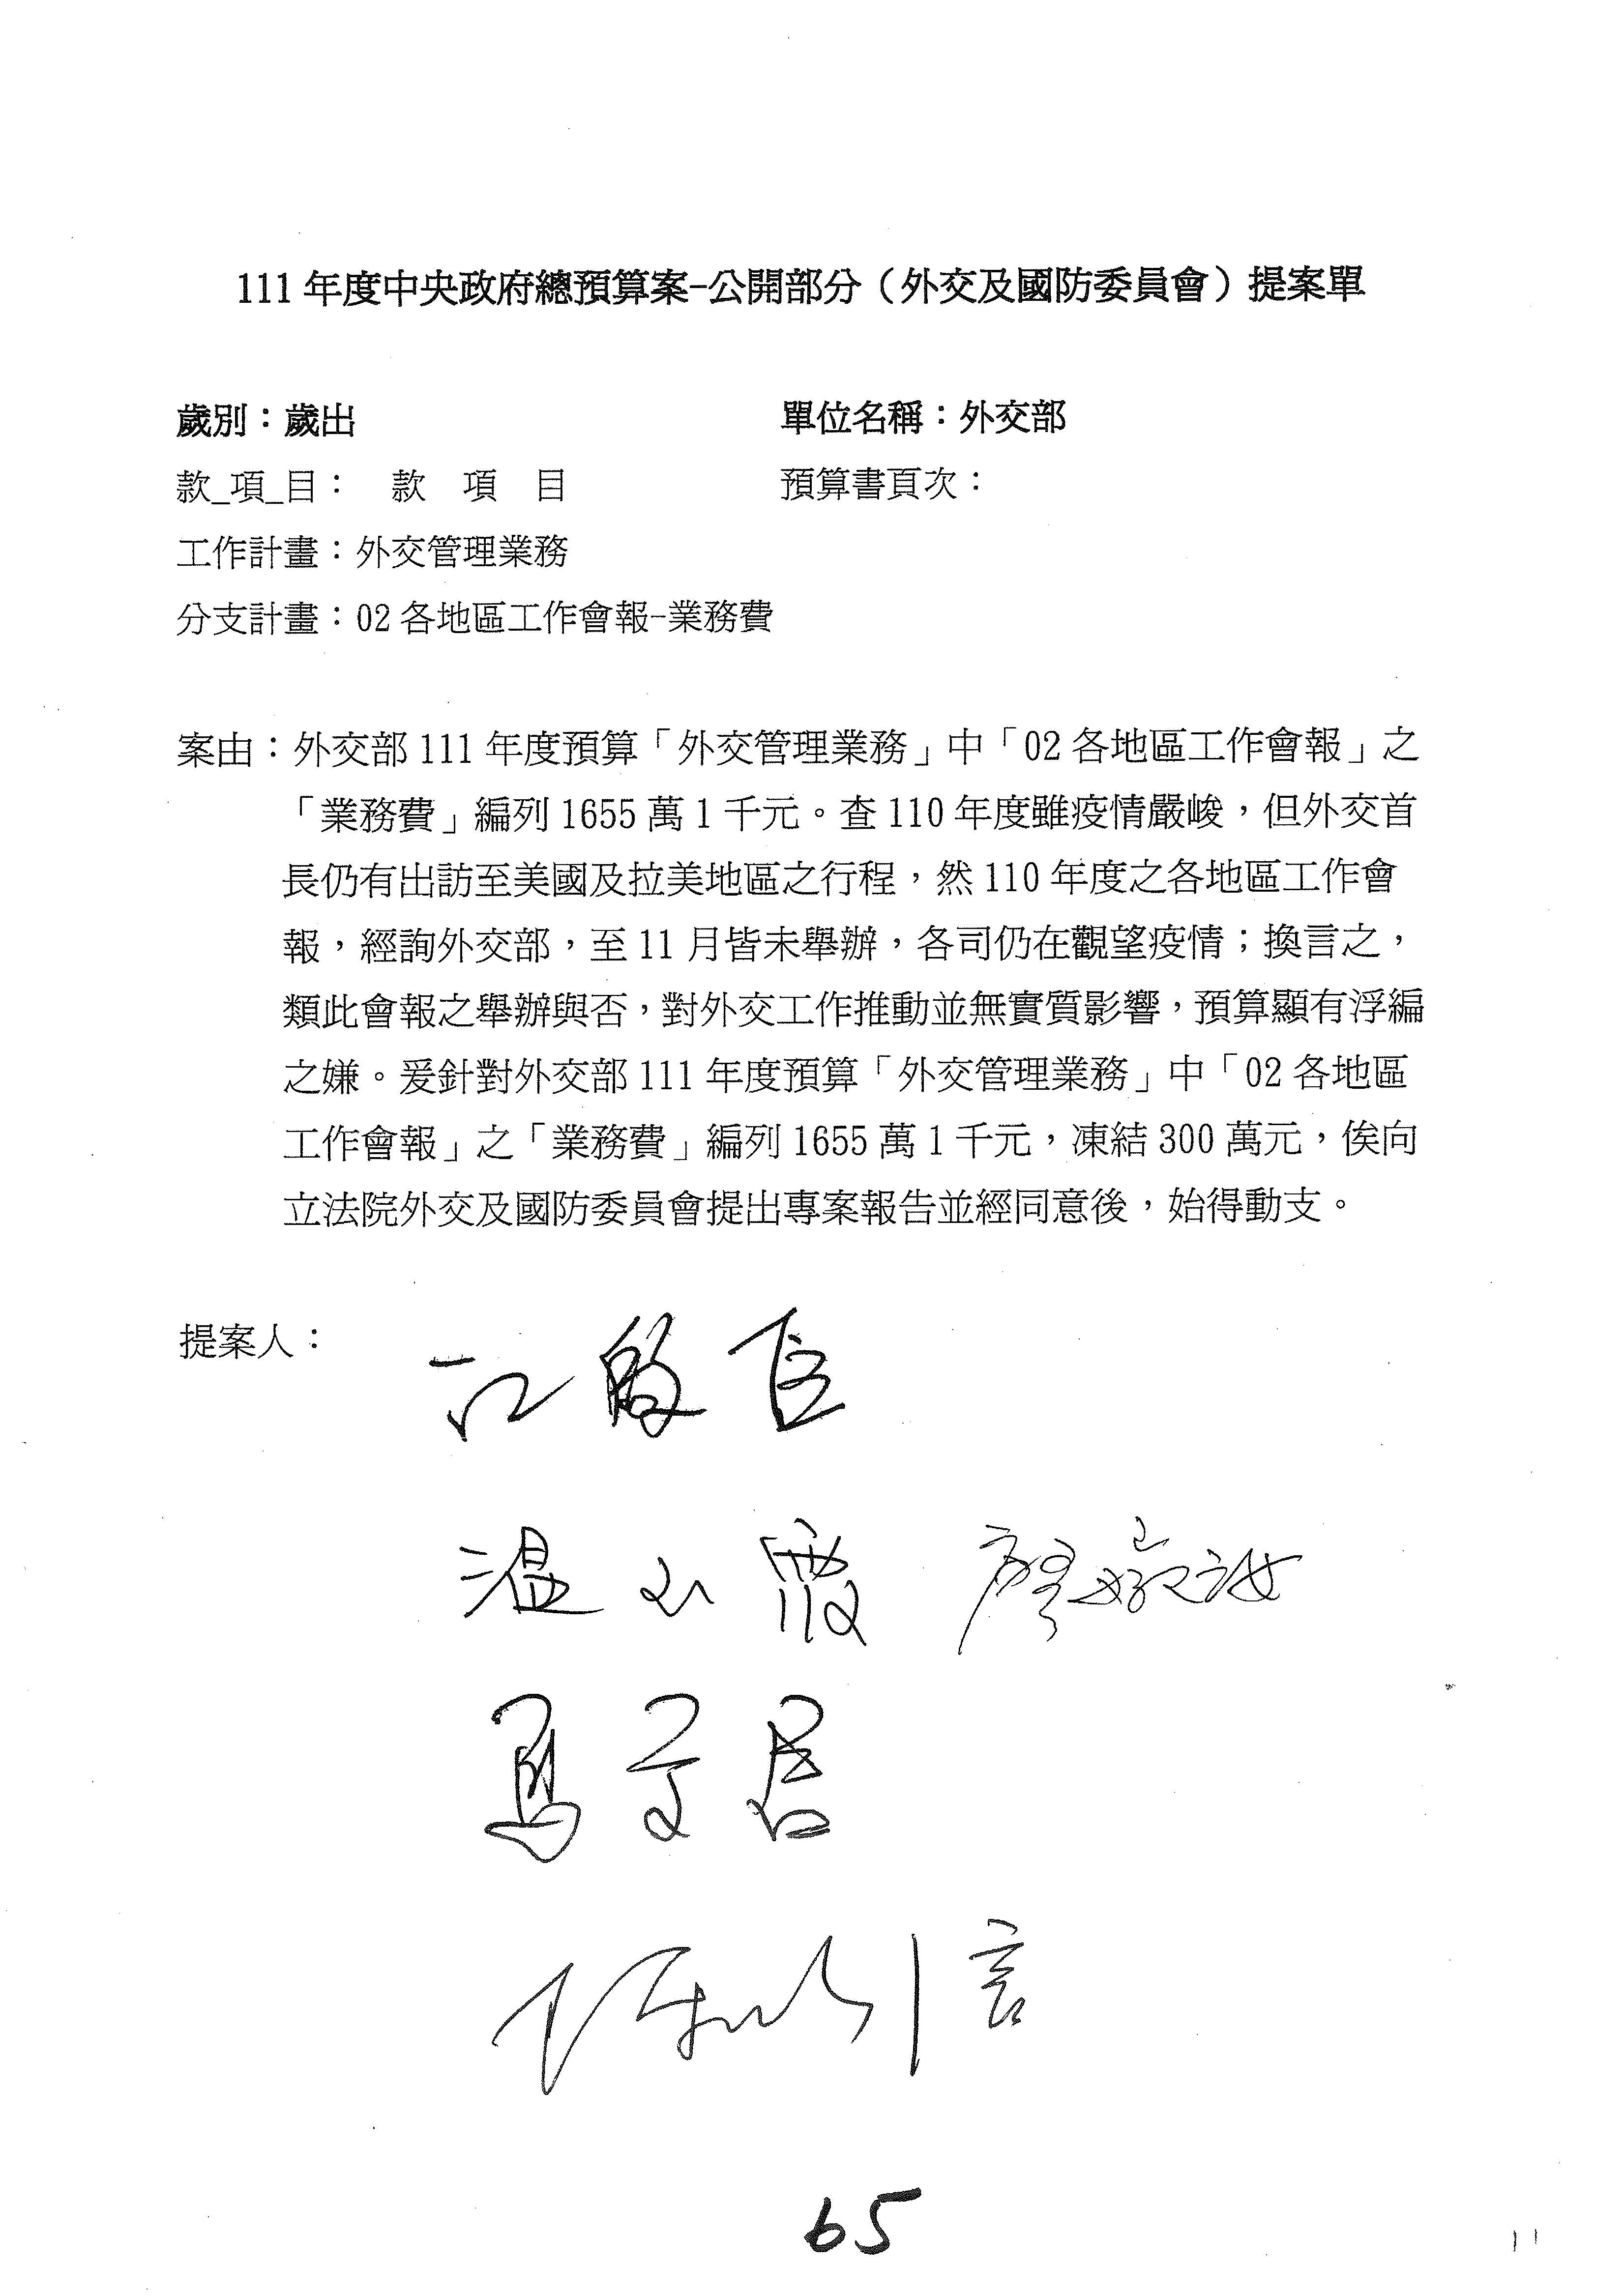 111 年度中央政府總預算案-公開部分（外交及國防委員會）提案單
歲別：歲出 單位名稱：外交部
款_項_目： 款 項 目 預算書頁次：
工作計畫：外交管理業務
分支計畫：02 各地區工作會報-業務費
案由：外交部 111 年度預算「外交管理業務」中「02 各地區工作會報」之
「業務費」編列 1655 萬 1 千元。查 110 年度雖疫情嚴峻，但外交首
長仍有出訪至美國及拉美地區之行程，然 110 年度之各地區工作會
報，經詢外交部，至 11 月皆未舉辦，各司仍在觀望疫情；換言之，
類此會報之舉辦與否，對外交工作推動並無實質影響，預算顯有浮編
之嫌。爰針對外交部 111 年度預算「外交管理業務」中「02 各地區
工作會報」之「業務費」編列 1655 萬 1 千元，凍結 300 萬元，俟向
立法院外交及國防委員會提出專案報告並經同意後，始得動支。
提案人：
江啟臣
溫玉霞
馬文君
65